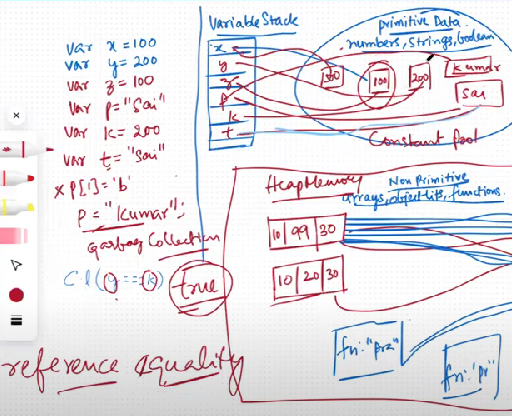 var x = 100
var y = 200
var z = 100
var p = "Sai"
var k = 200
var t = "Sai"
x p[1] = 'b'
p = "kumar";
garbag Collection
C.l(y == k) true
reference equality
Variable Stack
x
y
z
p
k
t
primitive Data
numbers, Strings, boolean
100
200
kumar
sai
Constant pool
Heap Memory
Non Primitive
arrays, object lits, functions
10 99 30
10 20 30
fn: "pr"